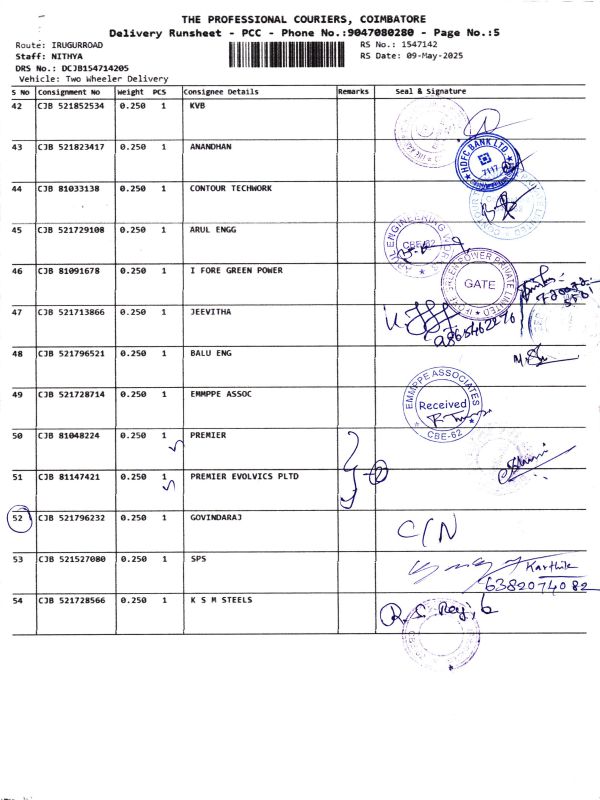 THE PROFESSIONAL COURIERS, COIMBATORE
Delivery Runsheet - PCC - Phone No.:9047080280 - Page No.:5
Route: IRUGURROAD
RS No.: 1547142
Staff: NITHYA
RS Date: 09-May-2025
DRS No.: DCJB154714205
Vehicle: Two Wheeler Delivery
S No Consignment No Weight PCS Consignee Details Remarks Seal & Signature
42 CJB 521852534 0.250 1 KVB
43 CJB 521823417 0.250 1 ANANDHAN
HDFC BANK LTD
44 CJB 81033138 0.250 1 CONTOUR TECHWORK
45 CJB 521729108 0.250 1 ARUL ENGG
ARUL ENGINEERING
CBE-62
46 CJB 81091678 0.250 1 I FORE GREEN POWER
GREEN POWER PRIVATE LIMITED
GATE
47 CJB 521713866 0.250 1 JEEVITHA
9865462276
48 CJB 521796521 0.250 1 BALU ENG
49 CJB 521728714 0.250 1 EMMPPE ASSOC
EMMPPE ASSOCIATES
Received
CBE-62
50 CJB 81048224 0.250 1 PREMIER
51 CJB 81147421 0.250 1 PREMIER EVOLVICS PLTD
2
52 CJB 521796232 0.250 1 GOVINDARAJ
C/N
53 CJB 521527080 0.250 1 SPS
Karthik
6382074082
54 CJB 521728566 0.250 1 K S M STEELS